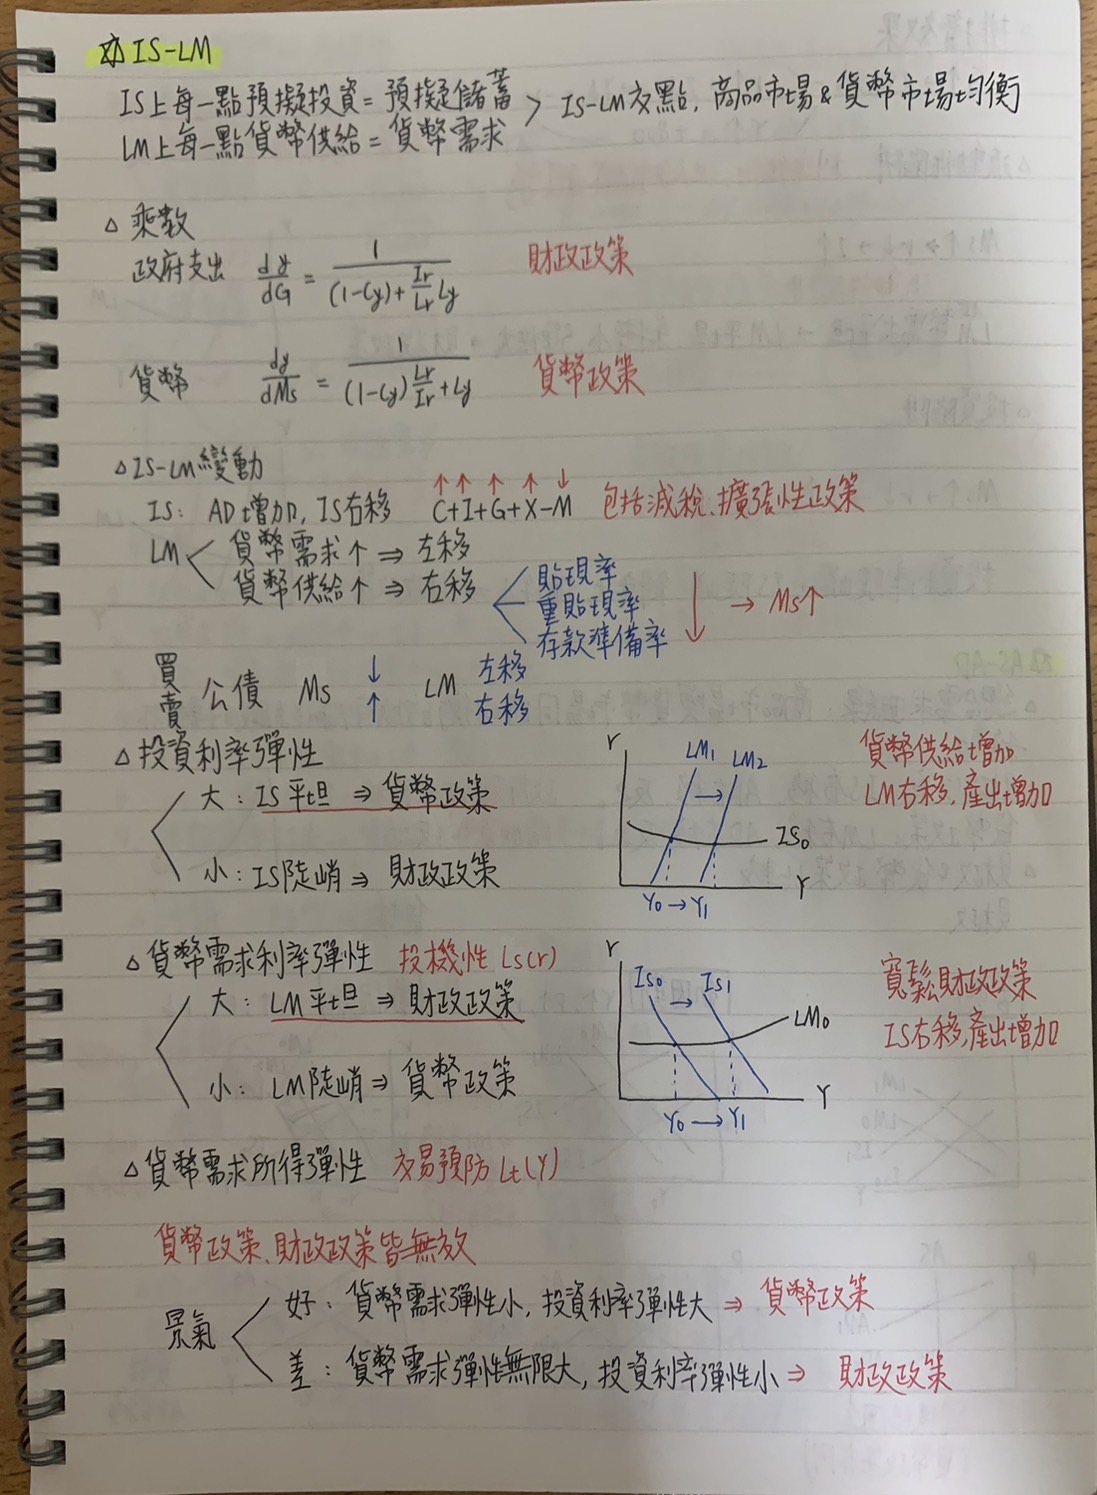 ☆ IS-LM
IS上每一點預擬投資=預擬儲蓄 > IS-LM交點,商品市場&貨幣市場均衡
LM上每一點貨幣供給=貨幣需求
△ 乘數
政府支出 dy/dG = 1/((1-Cy)+(Ir/Lr)Ly) 財政政策
貨幣 dy/dMs = 1/((1-Cy)(Lr/Ir)+Ly) 貨幣政策
△ IS-LM變動
↑ ↑ ↑ ↑ ↓
IS: AD增加,IS右移 C+I+G+X-M 包括減稅、擴張性政策
LM < 貨幣需求↑ ⇒ 左移
貨幣供給↑ ⇒ 右移 < 貼現率
重貼現率 ↓ → Ms↑
存款準備率
買 ↓ 左移
公債 Ms LM
賣 ↑ 右移
△ 投資利率彈性
大: IS平坦 ⇒ 貨幣政策
小: IS陡峭 ⇒ 財政政策
r LM1 → LM2
IS0
Y
Y0 → Y1
貨幣供給增加
LM右移,產出增加
△ 貨幣需求利率彈性 投機性 Ls(r)
大: LM平坦 ⇒ 財政政策
小: LM陡峭 ⇒ 貨幣政策
r IS0 → IS1
LM0
Y
Y0 → Y1
寬鬆財政政策
IS右移,產出增加
△ 貨幣需求所得彈性 交易預防 Lt(Y)
貨幣政策、財政政策皆無效
景氣 < 好: 貨幣需求彈性小,投資利率彈性大 ⇒ 貨幣政策
差: 貨幣需求彈性無限大,投資利率彈性小 ⇒ 財政政策